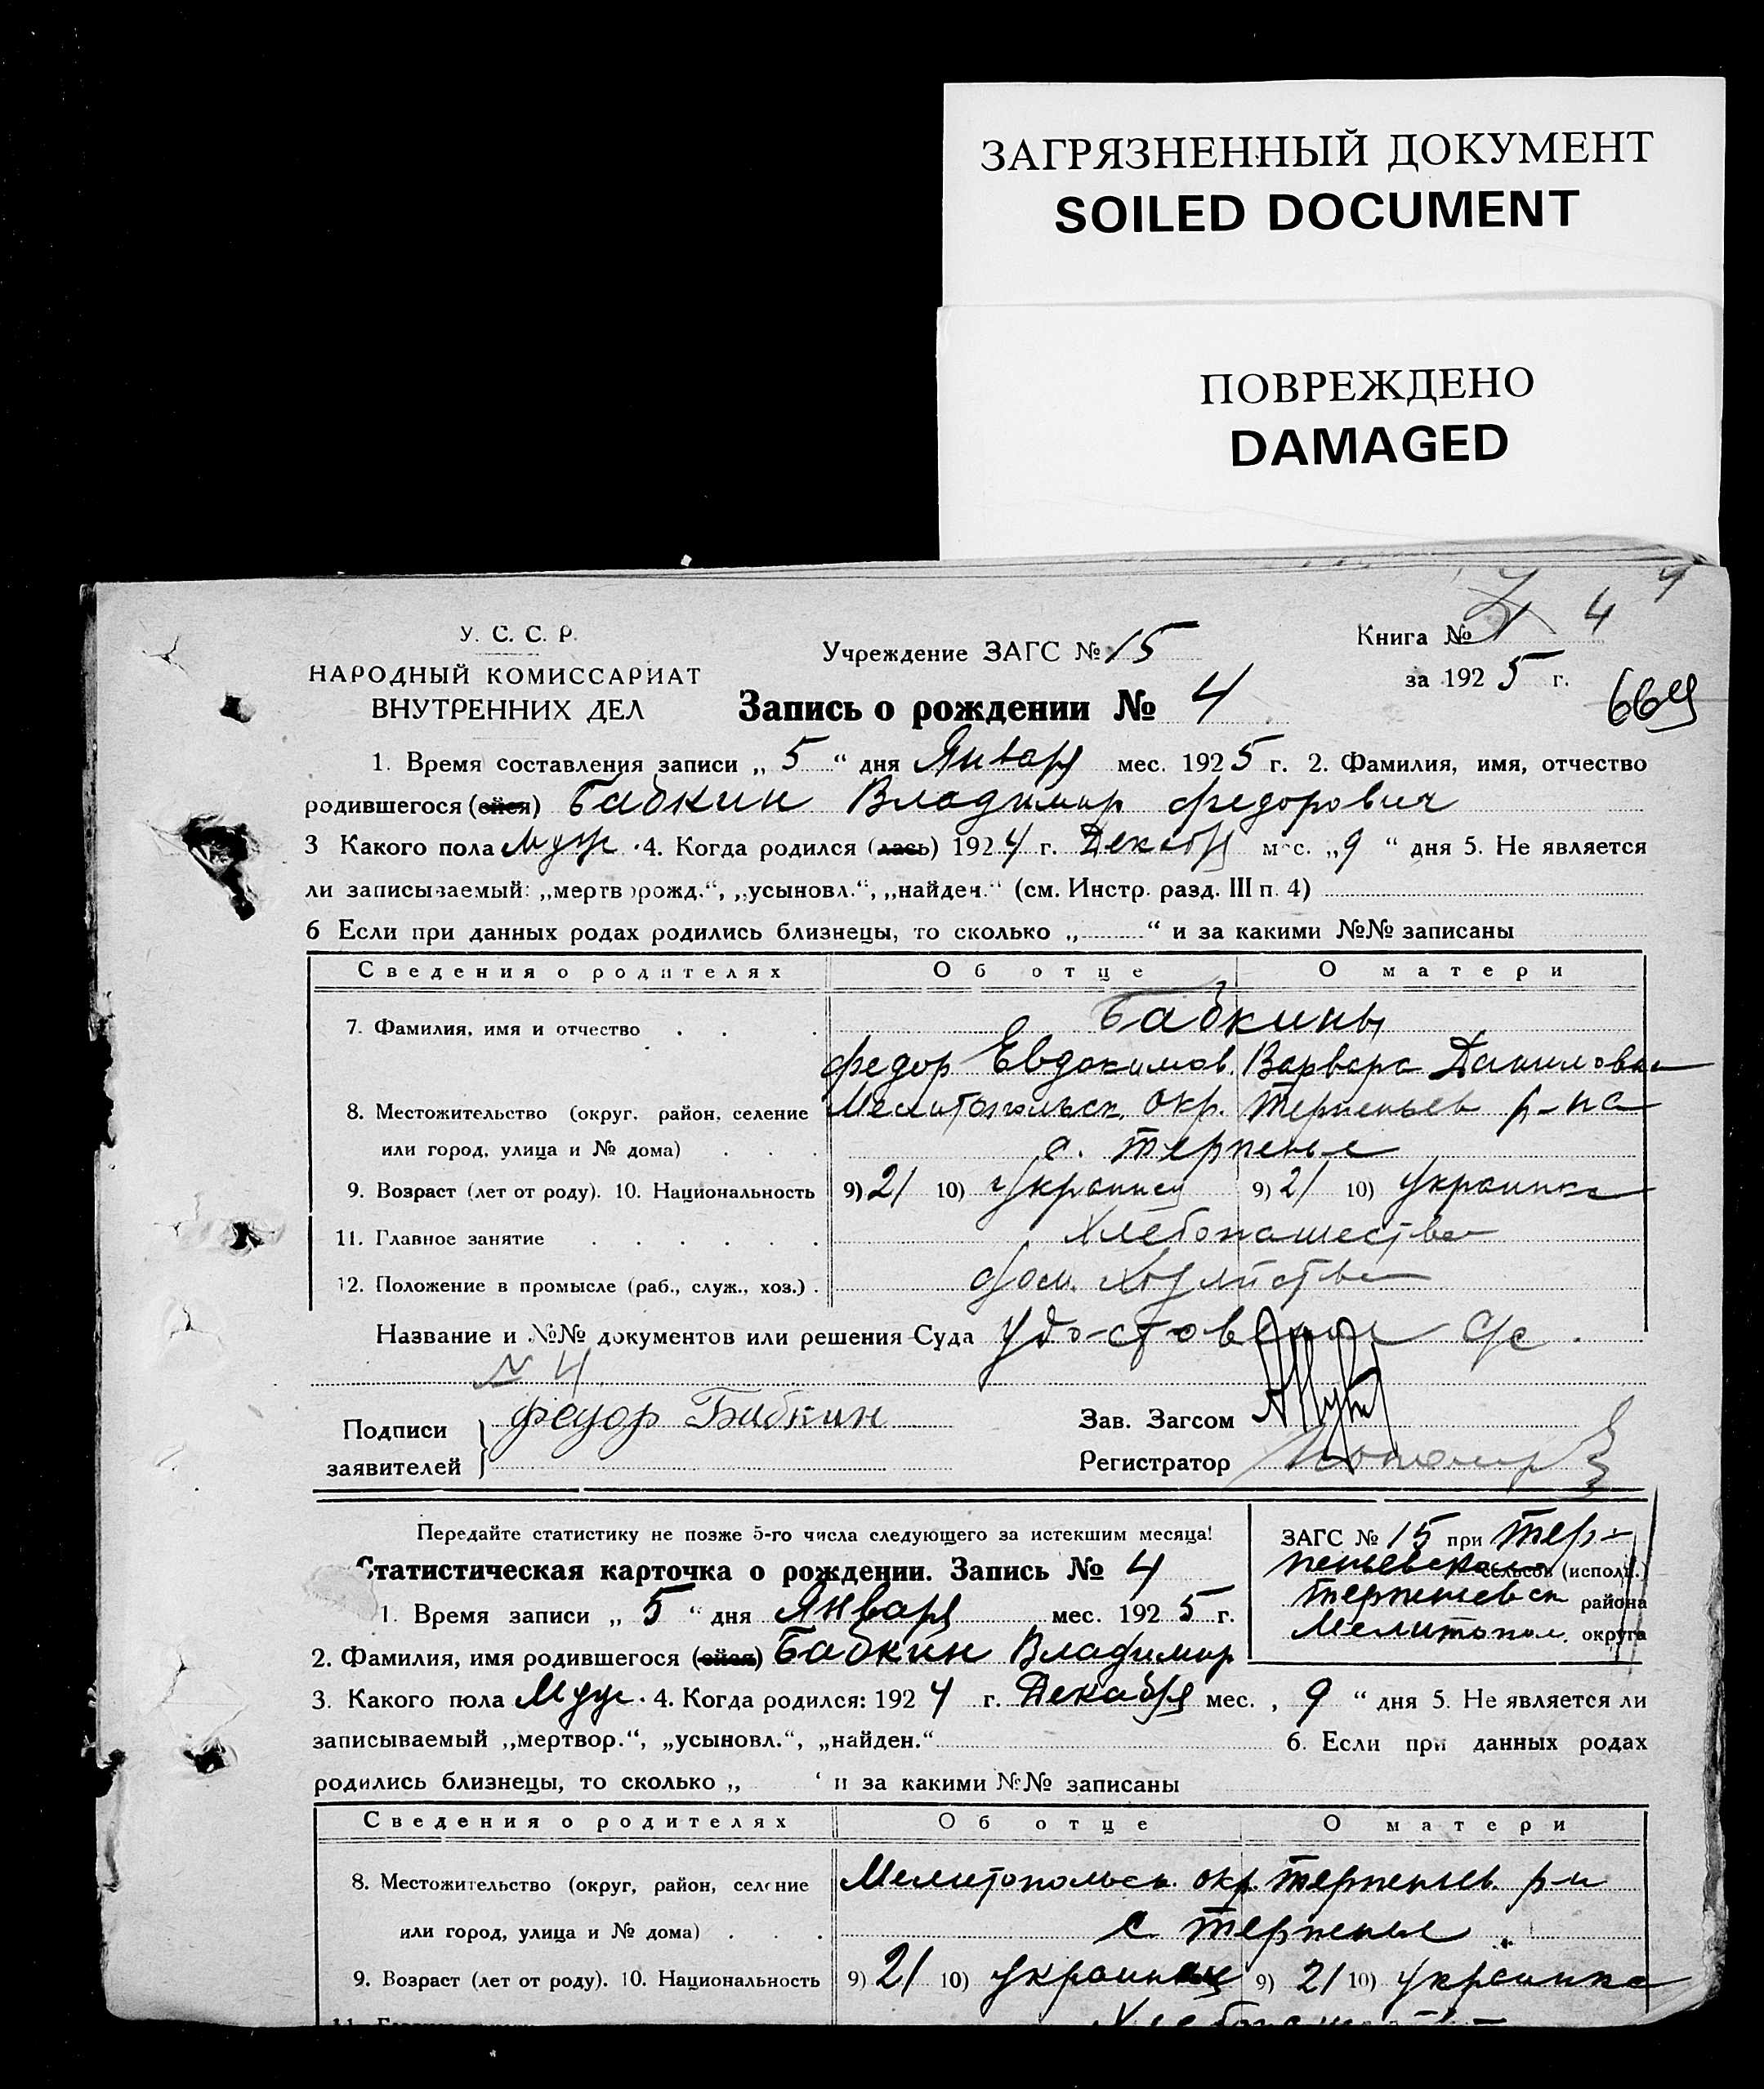 ЗАГРЯЗНЕННЫЙ ДОКУМЕНТ
SOILED DOCUMENT
ПОВРЕЖДЕНО
DAMAGED
4
У. С. С. Р.
НАРОДНЫЙ КОМИССАРИАТ
ВНУТРЕННИХ ДЕЛ
Учреждение ЗАГС № 15
Книга № 4
за 1925 г.
Запись о рождении № 4
1. Время составления записи „ 5 “ дня Январ мес. 1925 г. 2. Фамилия, имя, отчество
родившегося (ейся) Бабкин Владимир Федорович
3 Какого пола муж. 4. Когда родился (лась) 1924 г. Декабр мес. „9 “ дня 5. Не является
ли записываемый: „мертворожд.“, „усыновл.“, „найден.“ (см. Инстр. разд. III п. 4)
6 Если при данных родах родились близнецы, то сколько „ “ и за какими №№ записаны
Сведения о родителях Об отце О матери
7. Фамилия, имя и отчество . . . Бабкины
Федор Евдокимов. Варвара Даниловна
8. Местожительство (округ, район, селение Мелитопольск. окр. Терпеньев р-на
или город, улица и № дома) . . . с. Терпенье
9. Возраст (лет от роду). 10. Национальность 9) 21 10) Украинец 9) 21 10) Украинка
11. Главное занятие . . . . . Хлебопашество
12. Положение в промысле (раб., служ., хоз.) .
Название и №№ документов или решения Суда с/с.
№ 4
Подписи
заявителей
Федор Бабкин
Зав. Загсом
Регистратор
Передайте статистику не позже 5-го числа следующего за истекшим месяца!
Статистическая карточка о рождении. Запись № 4
ЗАГС № 15 при Тер-
пеньевском сельсов (исполк.)
Терпеньевск района
Мелитопол. округа
1. Время записи „ 5 “ дня Январ мес. 1925 г.
2. Фамилия, имя родившегося (ейся) Бабкин Владимир
3. Какого пола Муж. 4. Когда родился: 1924 г. Декабр мес. „ 9 “ дня 5. Не является ли
записываемый „мертвор.“, „усыновл.“, „найден.“ 6. Если при данных родах
родились близнецы, то сколько „ “ и за какими №№ записаны
Сведения о родителях Об отце О матери
8. Местожительство (округ, район, селение Мелитопольск. окр. Терпеньев. р-н
или город, улица и № дома) . . . с Терпенье
9. Возраст (лет от роду). 10. Национальность 9) 21 10) Украинец 9) 21 10) Украинка
Хлебопашество